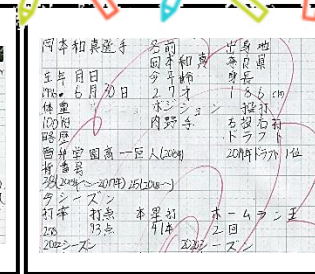 岡本和真選手 名前 出身地
岡本和真 奈良県
生年月日 今年齢 身長
1996. 6月30日 27才 186cm
体重 ポジション 投打
100kg 内野手 右投右打
略歴 ドラフト
智弁学園高ー巨人(2015) 2014年ドラフト1位
背番号
38(2015年〜2017年) 25(2018〜)
今シーズン
打率 打点 本塁打 ホームラン王
93点 41本 2回
シーズン シーズン